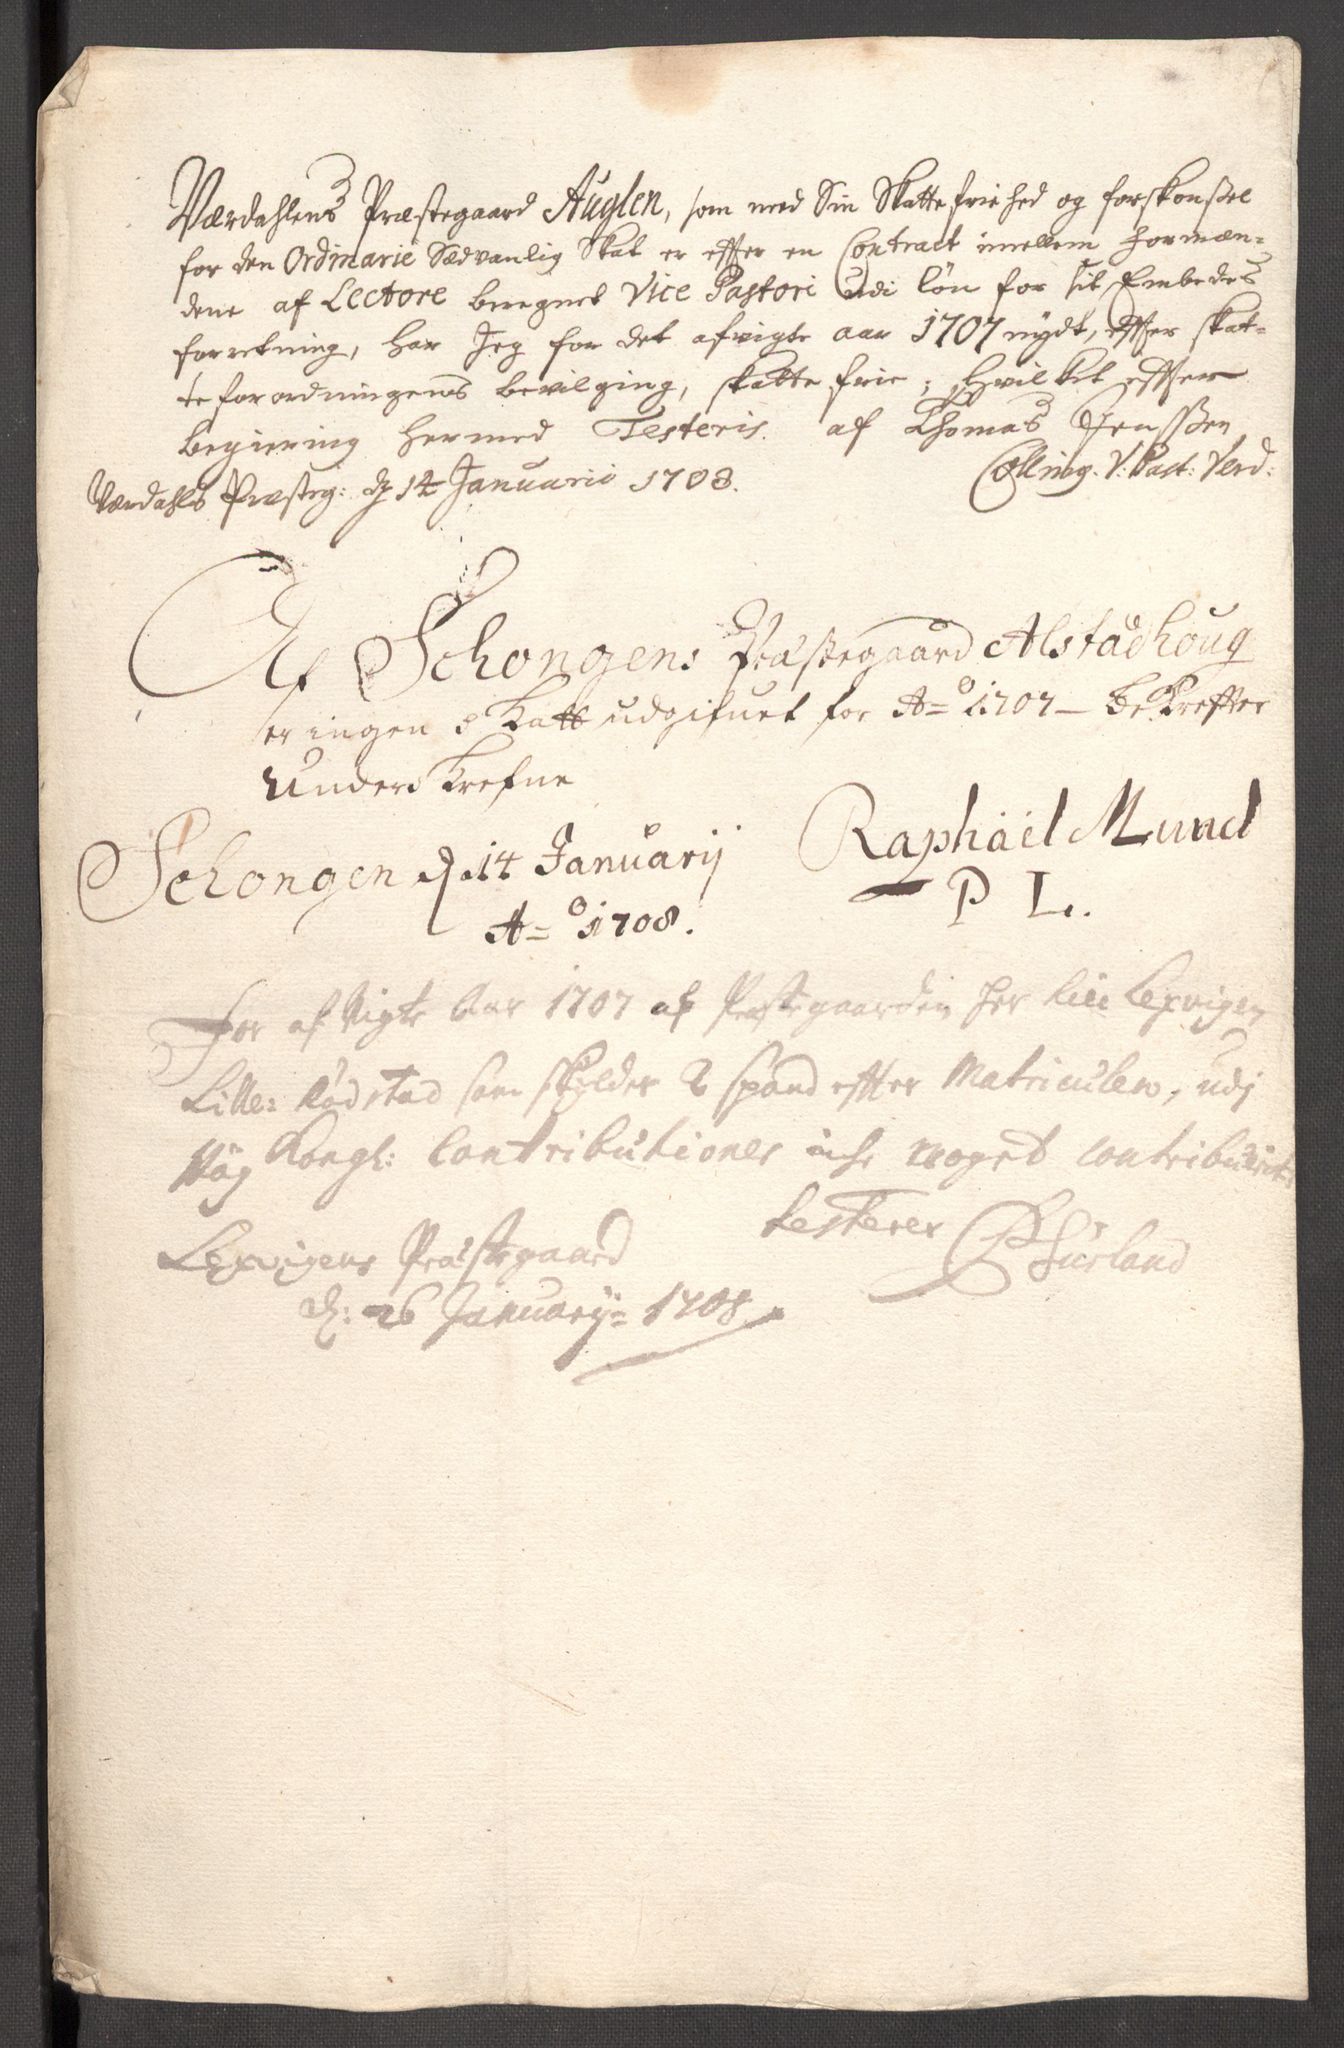 Værdahlens Præstegaard Auglen, som med Sin Skatte friehed og forskonsel
for den Ordinarie Sædvanlig Skat er effter en Contract imellem Formæn-
dene af Lectore beregnet Vice Pastori udi løn for sit Embedes
forretning, har Jeg for det afvigte aar 1707 nydt, effter skat-
te forordningens bevilging, skatte frie; Hvilket effter
begiering hermed Testeris. af Thomas Jenssen
Collling. V: Past: Verd:
Værdahls Præsteg: d 14 Januario 1708.
Af Schongens Præstegaard Alstadhoug
er ingen skatt udgifuet for A=o 1707 – bekrefter
Underskrefne
Raphael Mund
P L.
Schongen d. 14 Januarij
A=o 1708.
For afvigte Aar 1707 af Præstegaarden her Lexvigen
Lille= som skylder 2 spand effter Matriculen, udj
Kongl: Contributioner iche noget contribuerit
testerer
Lexvigens Præstegaard
d: 26 January= 1708.